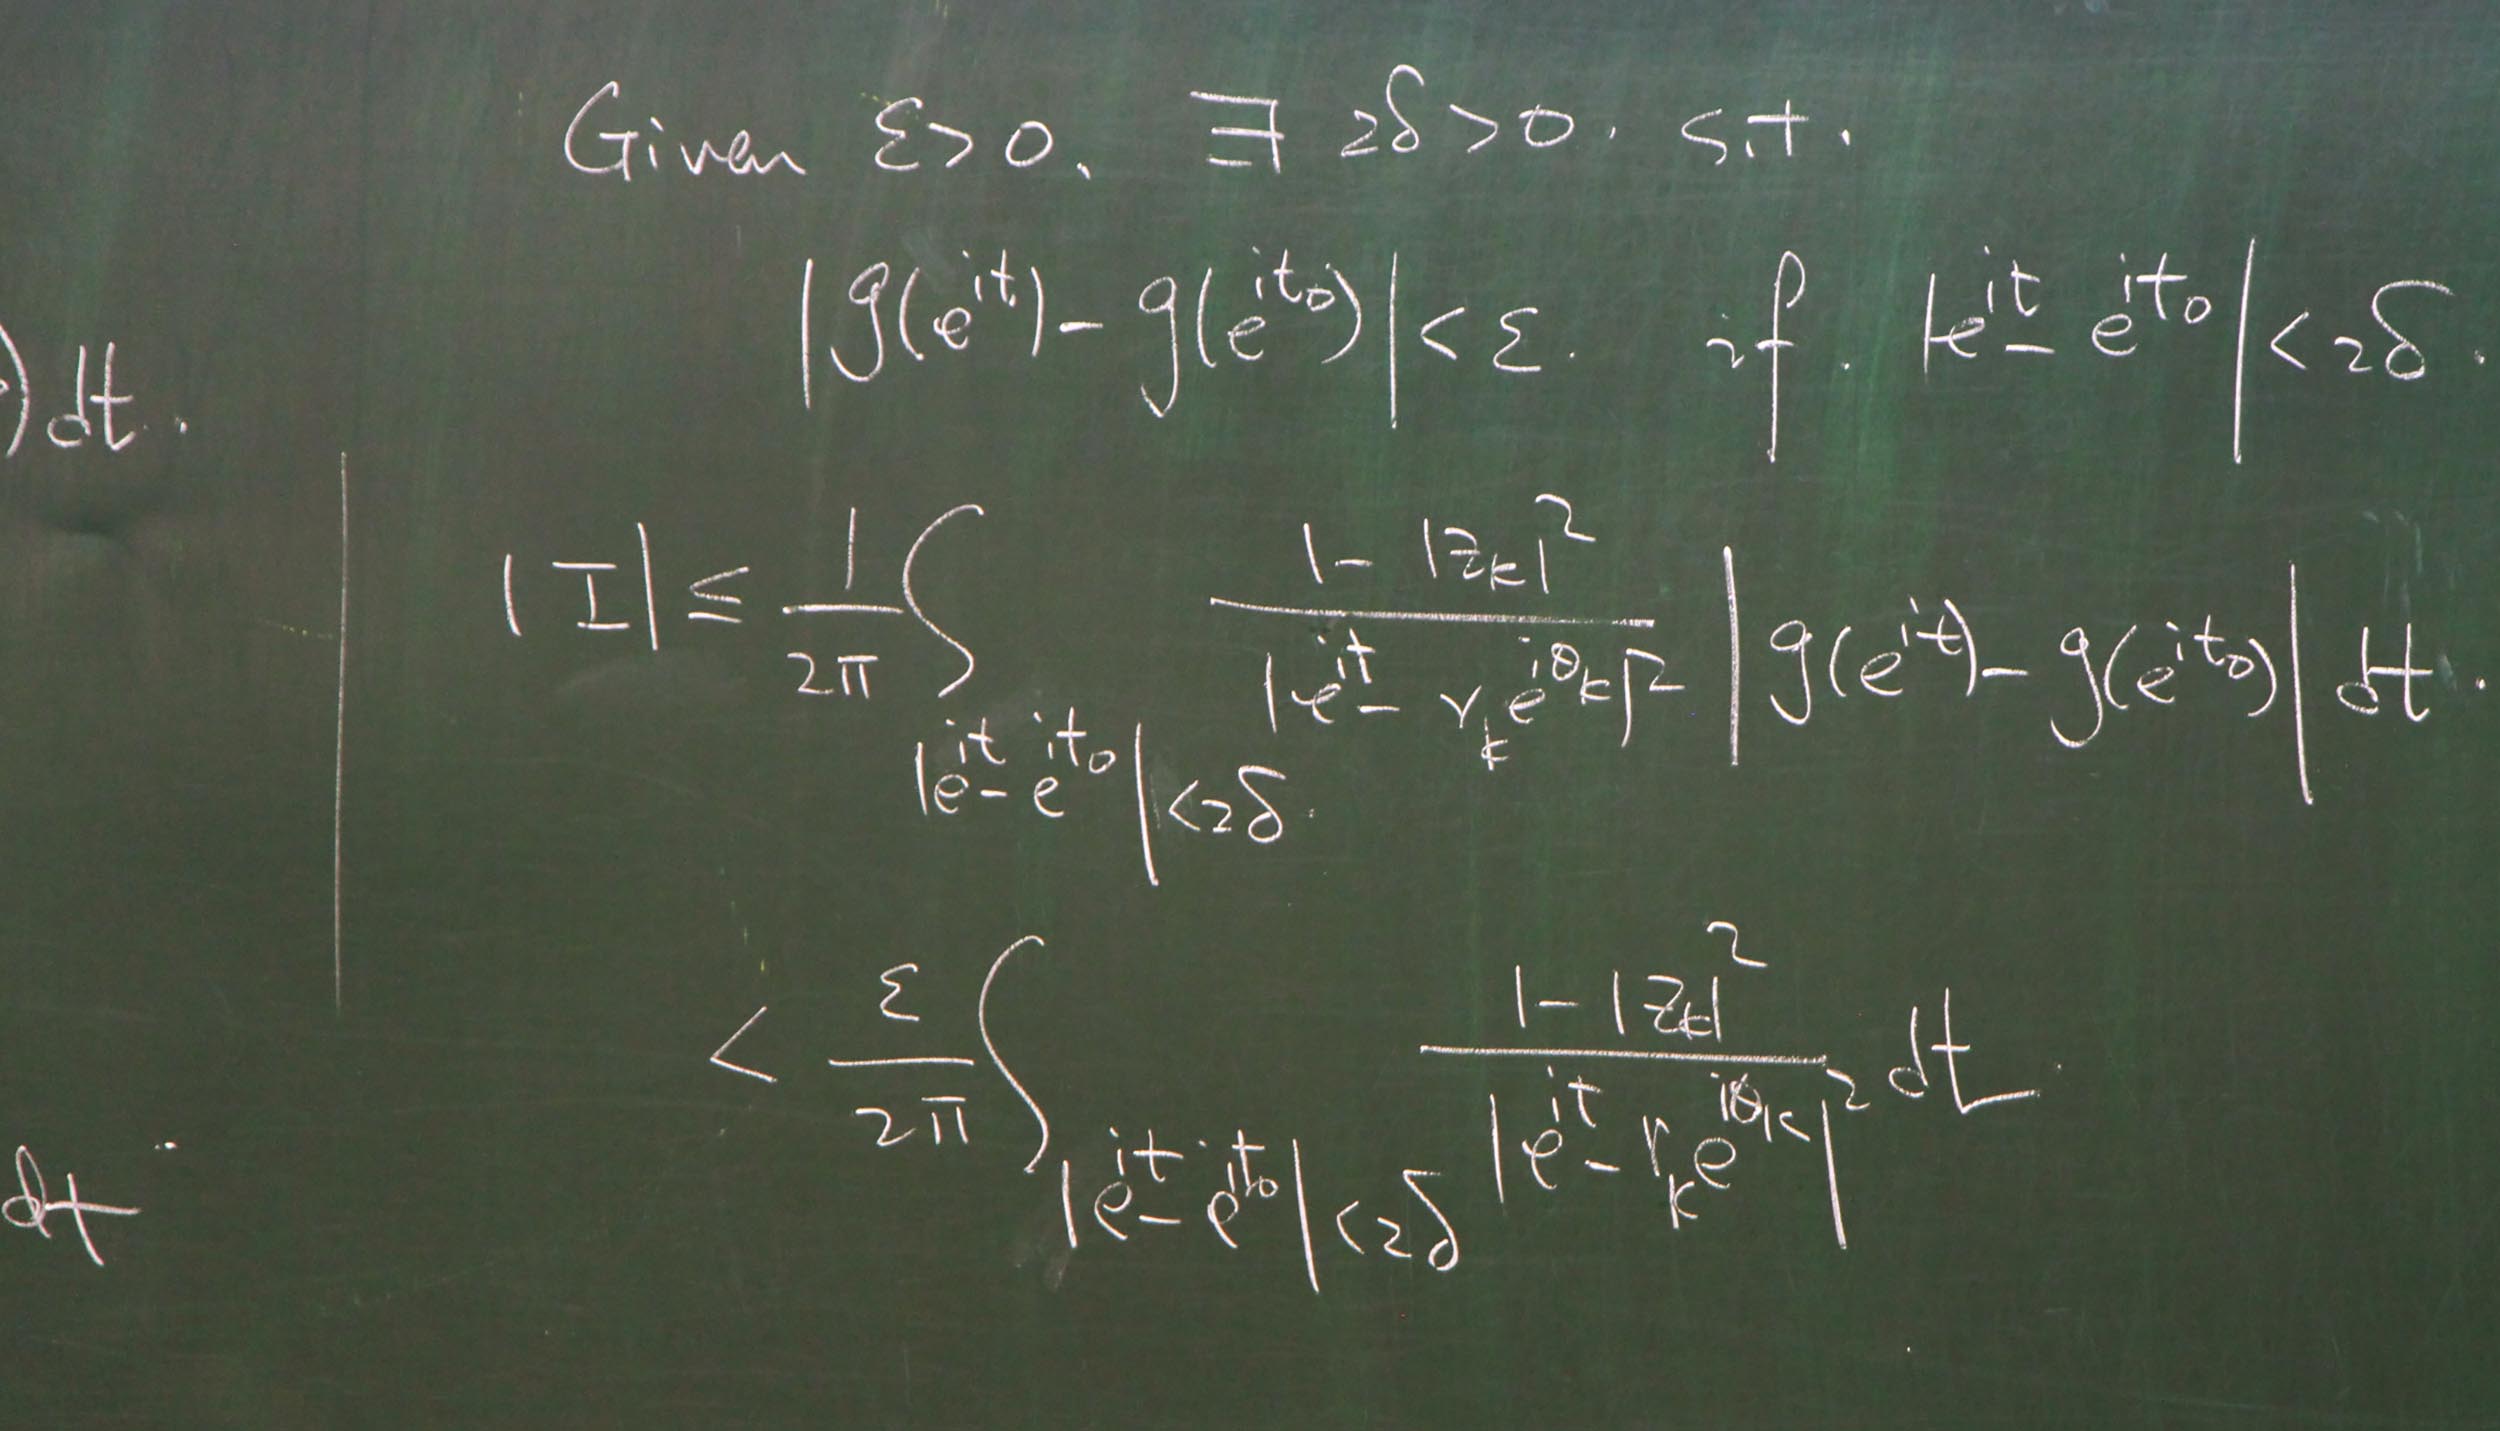 Given ε>0. ∃ 2δ>0. s.t.
|g(e^{it}) - g(e^{it_0})| < ε. if. |e^{it} - e^{it_0}| < 2δ.
) dt.
|I| ≤ \frac{1}{2π} ∫_{|e^{it} - e^{it_0}| < 2δ.} \frac{1 - |z_k|^2}{|e^{it} - r_k e^{iθ_k}|^2} |g(e^{it}) - g(e^{it_0})| dt.
< \frac{ε}{2π} ∫_{|e^{it} - e^{it_0}| < 2δ} \frac{1 - |z_k|^2}{|e^{it} - r_k e^{iθ_k}|^2} dt.
dt